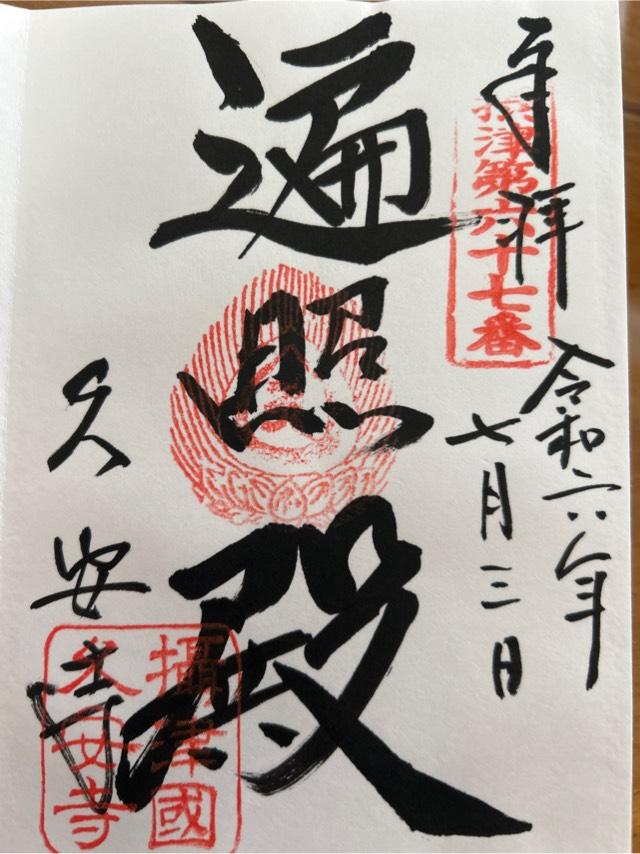 奉拝
摂津第六十七番
令和六年
七月三日
遍照殿
久安寺
攝津國
久安寺